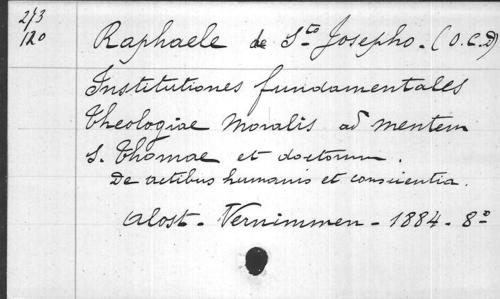 213
120
Raphaele de Sto Josepho - (O.C.D)
Institutiones fundamentales
theologiae moralis ad mentem
S. Thomae et doctorum.
De actibus humanis et conscientia.
Alost - Vernimmen - 1884 - 8º